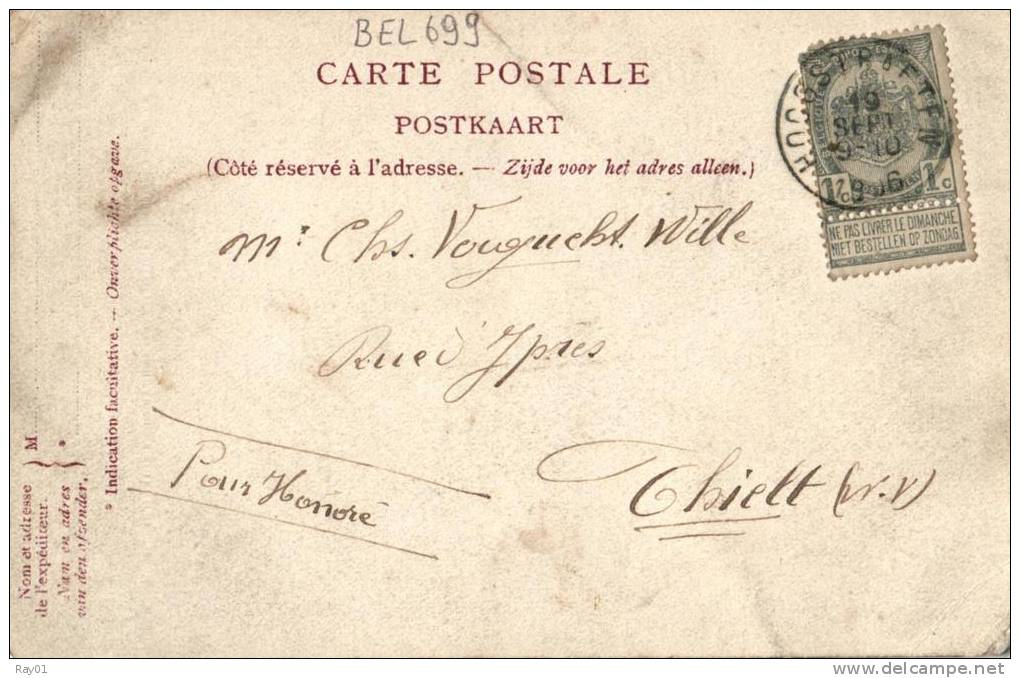 BEL 699
CARTE POSTALE
POSTKAART
(Côté réservé à l'adresse. — Zijde voor het adres alleen.)
HOOGSTRAETEN
19
SEPT
9-10
1c 1c
NE PAS LIVRER LE DIMANCHE
NIET BESTELLEN OP ZONDAG
Mr Chs. Vouguecht. Wille
Rue d'Ypres
Pour Honoré
Thielt
* Indication facultative. — Onverplichte opgave.
M
*
Nom et adresse
de l'expéditeur.
Nam en adres
van den afzender.
Ray01
www.delcampe.net